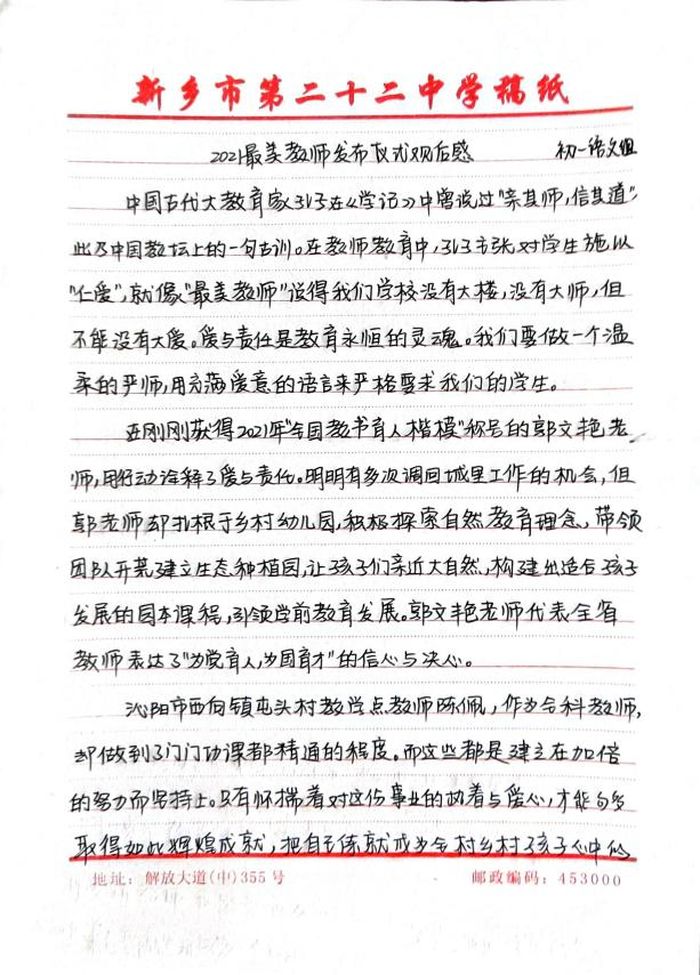 新乡市第二十二中学稿纸
2021最美教师发布仪式观后感 初一语文组
中国古代大教育家孔子在《学记》中曾说过"亲其师,信其道",
此乃中国教坛上的一句古训。在教师教育中,孔子主张对学生施以
"仁爱",就像"最美教师"说得我们学校没有大楼,没有大师,但
不能没有大爱。爱与责任是教育永恒的灵魂。我们要做一个温
柔的严师,用充满爱意的语言来严格要求我们的学生。
在刚刚获得2021年"全国教书育人楷模"称号的郭文艳老
师,用行动诠释了爱与责任。明明有多次调回城里工作的机会,但
郭老师却扎根于乡村幼儿园,积极探索自然教育理念,带领
团队开荒建立生态种植园,让孩子们亲近大自然,构建出适合孩子
发展的园本课程,引领学前教育发展。郭文艳老师代表全省
教师表达了"为党育人,为国育才"的信心与决心。
沁阳市西向镇屯头村教学点教师陈佩,作为全科教师,
却做到了门门功课都精通的程度。而这些都是建立在加倍
的努力而坚持上。只有怀揣着对这份事业的执着与爱心,才能够
取得如此辉煌成就,把自己练就成为全村乡村孩子心中的
地址:解放大道(中)355号 邮政编码:453000